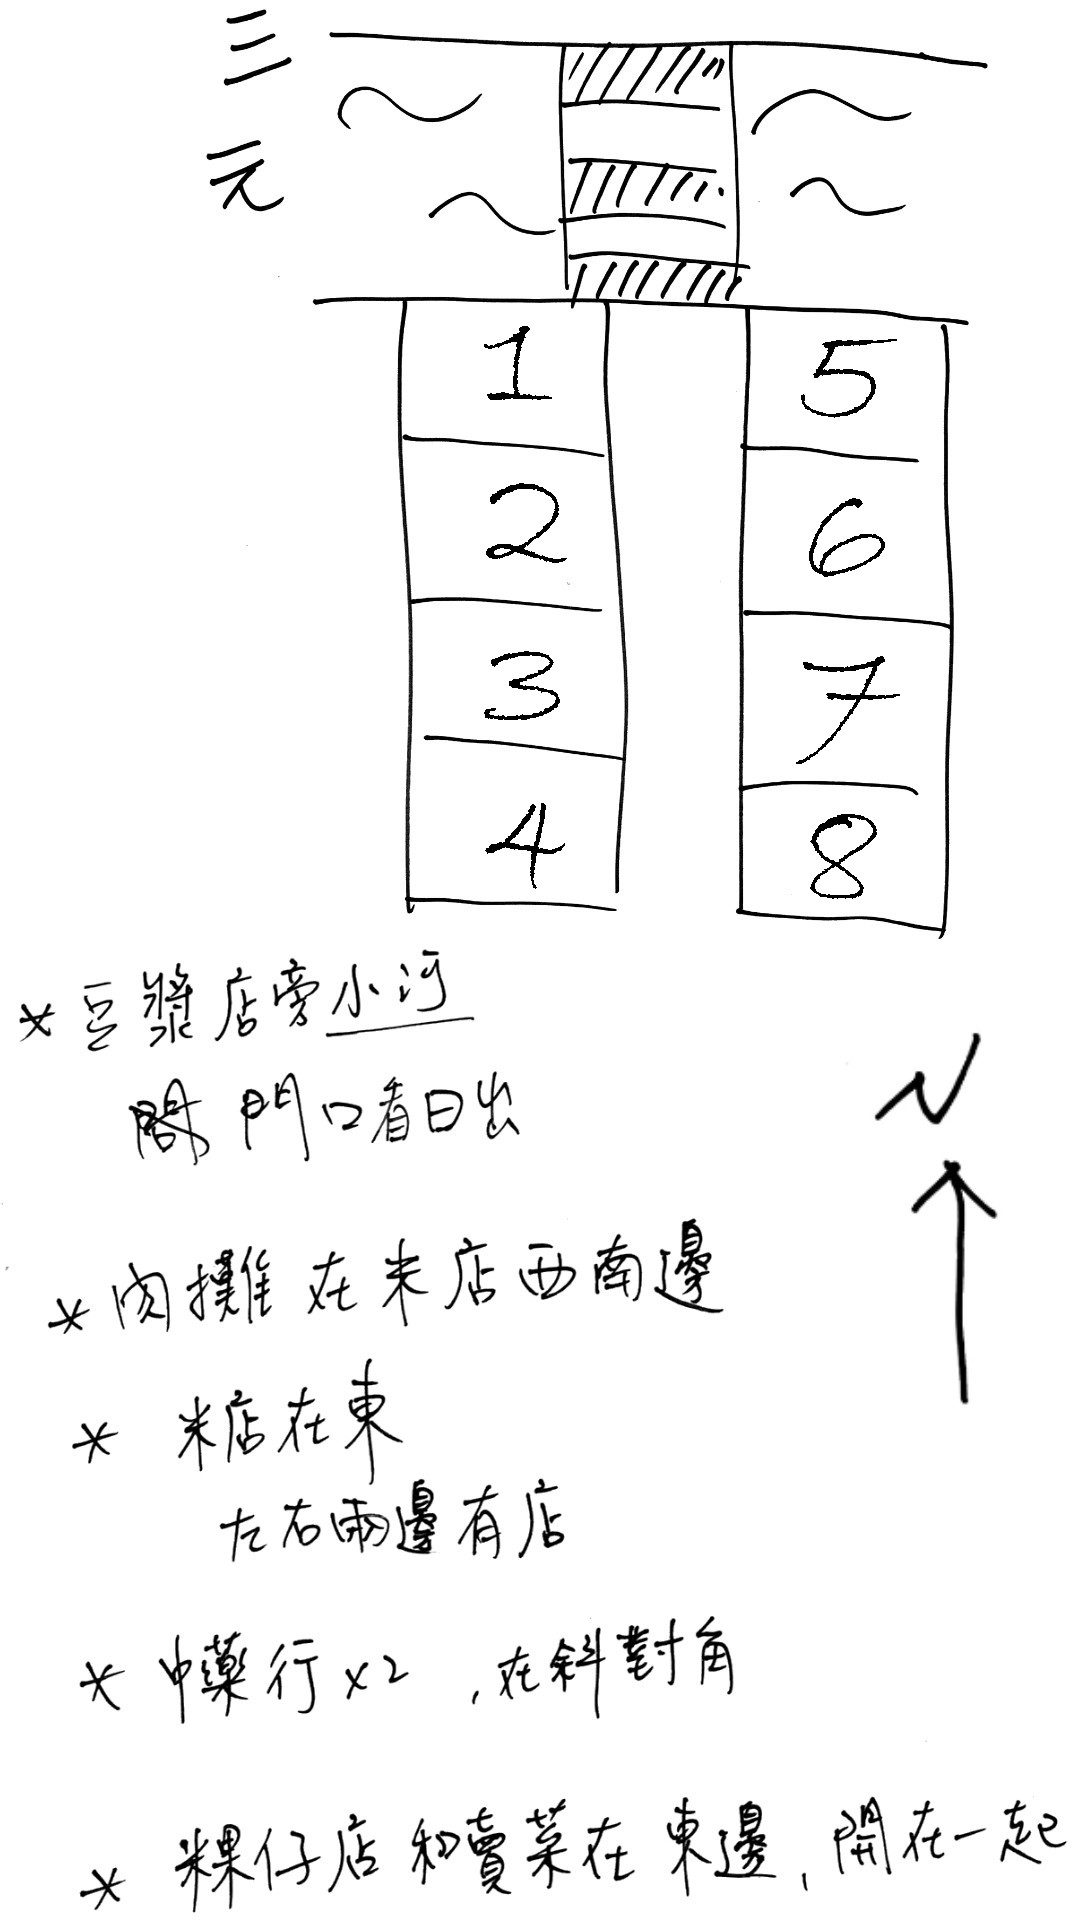 三
元
1
5
2
6
3
7
4
8
* 豆漿店旁小河
開門口看日出
N
* 肉攤在米店西南邊
* 米店在東
左右兩邊有店
* 中藥行x2，在斜對角
* 粿仔店和賣菜在東邊，開在一起